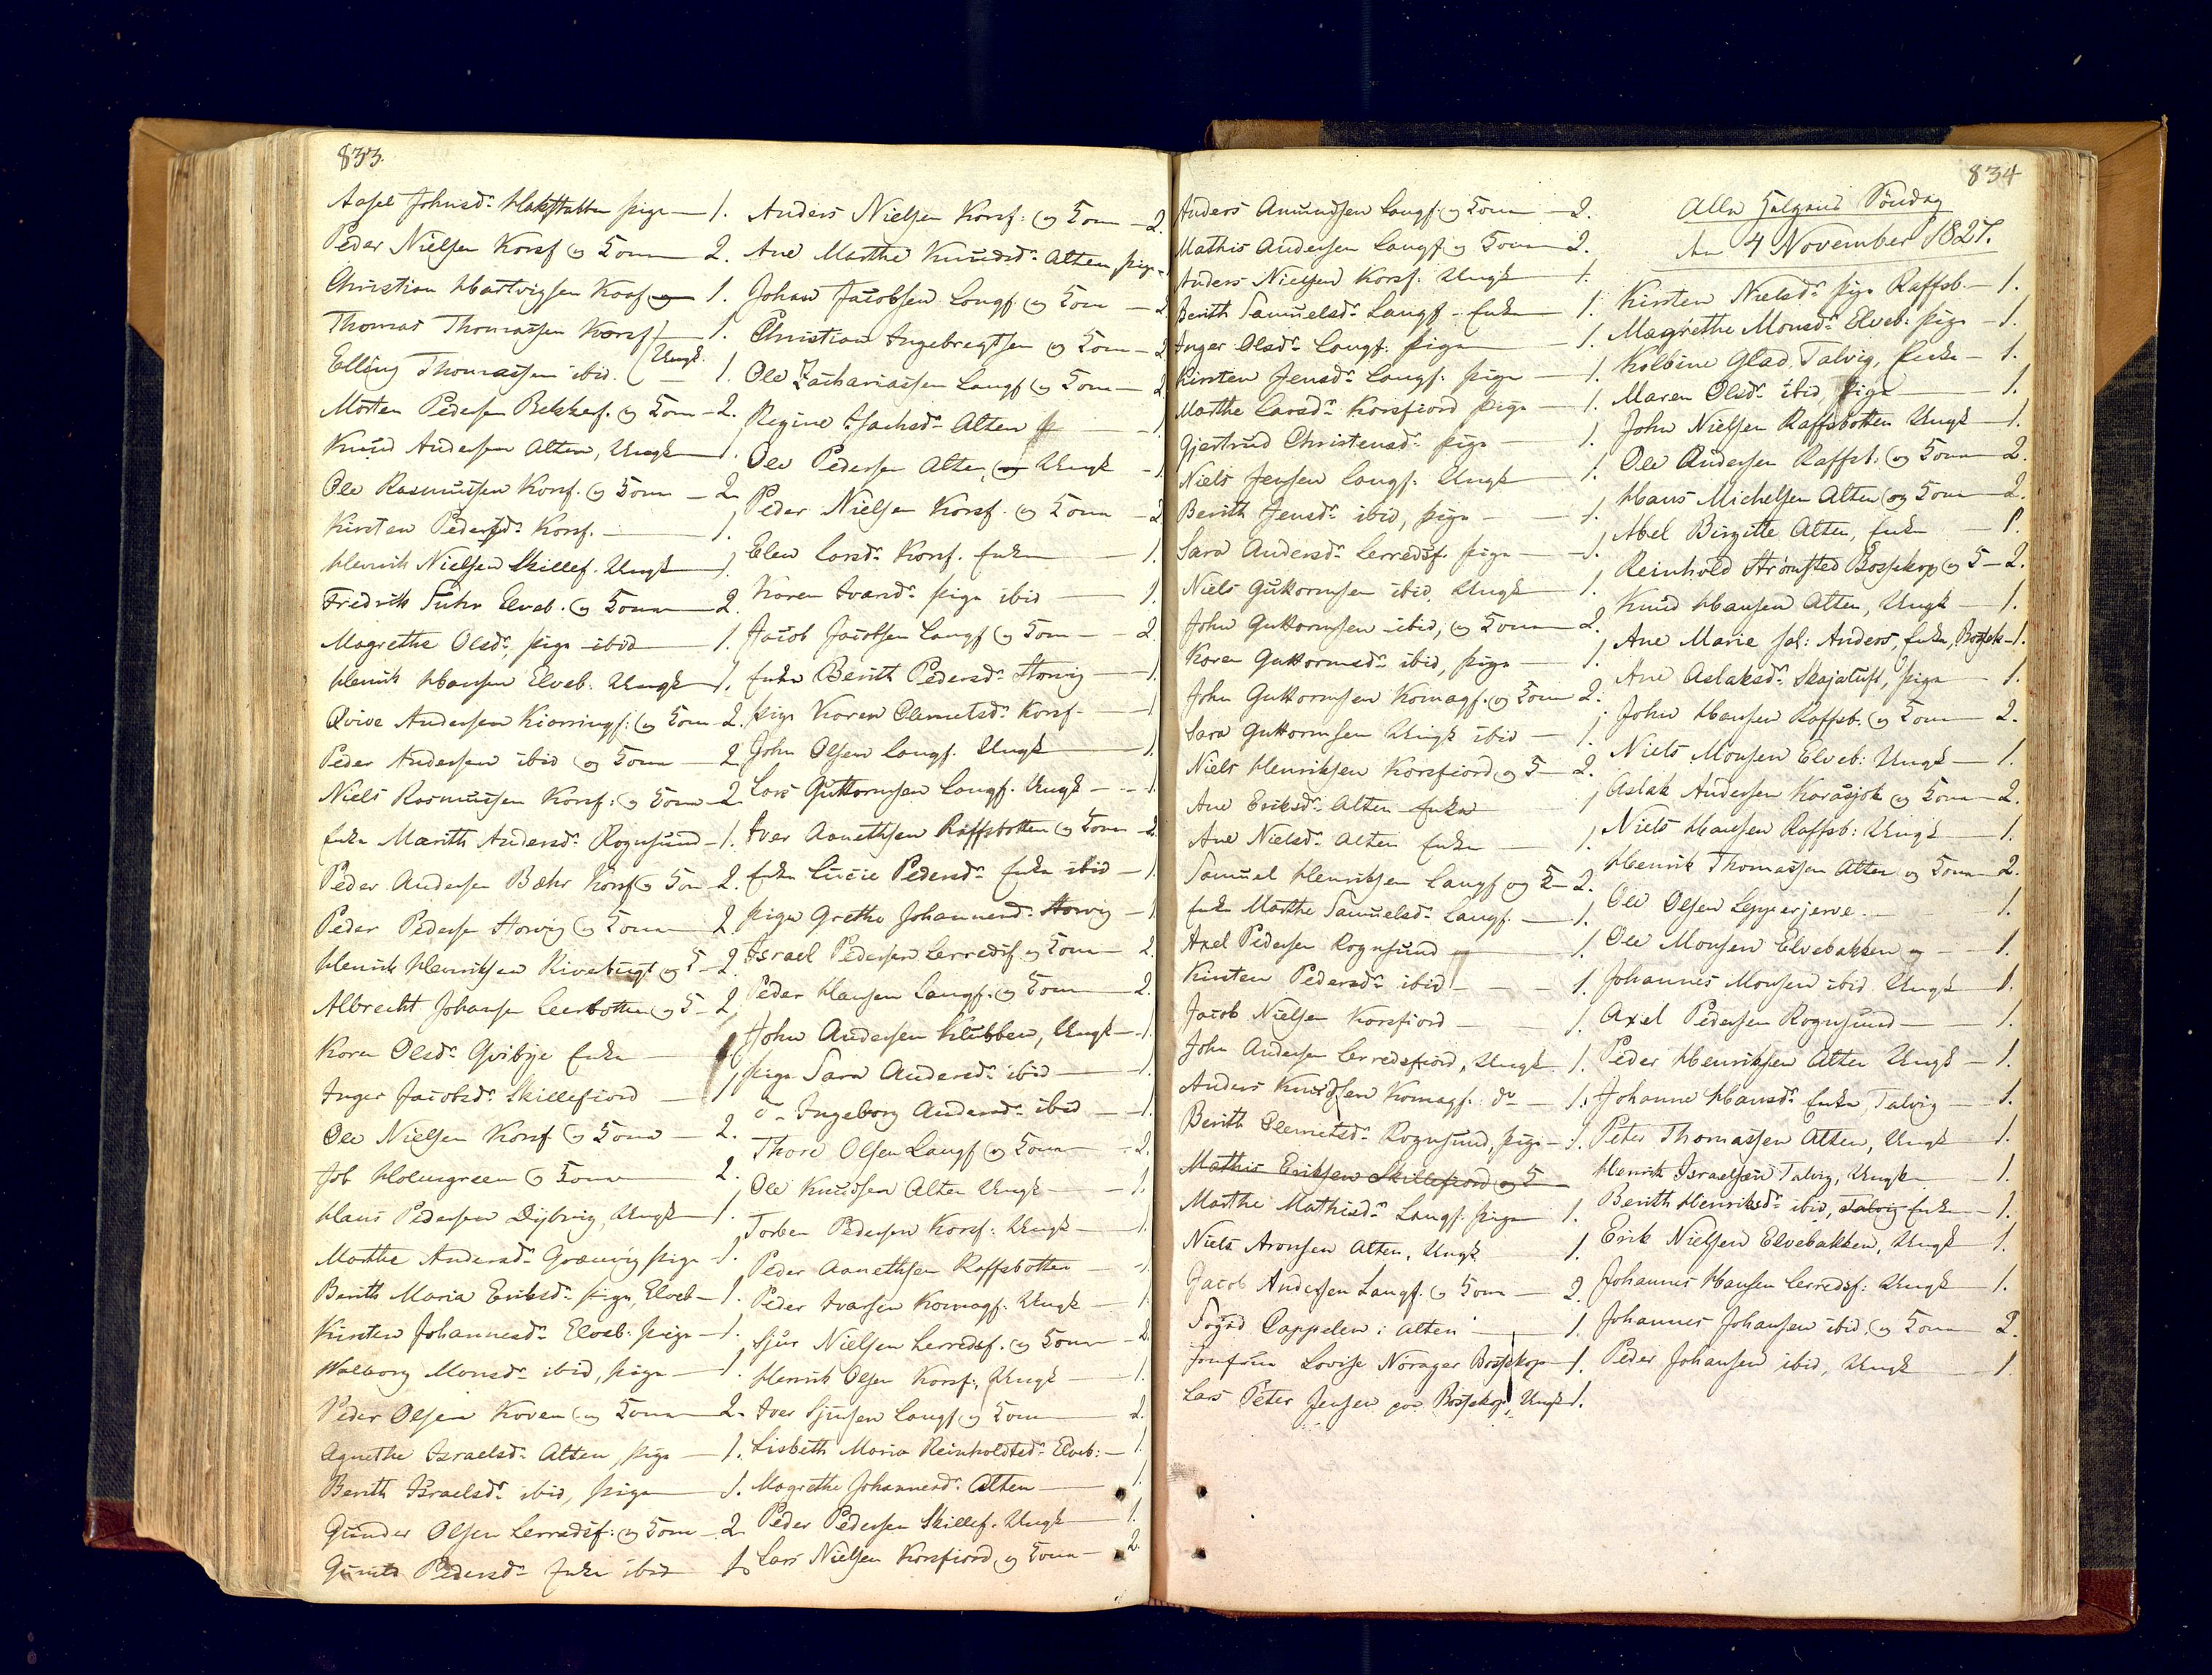 833.
Aasel Johnsd: Hakstabben pige — 1.
Peder Nielsen Korsf og Kone — 2.
Christian Hartvigsen Kaaf — 1.
Thomas Thomassen Korsf — 1.
Elling Thomassen ibid. Ungk. — 1.
Morten Pedersen Bekkerf. og Kone — 2.
Knud Andersen Alten, Ungk — 1.
Ole Rasmussen Korsf. og Kone — 2
Kirsten Pedersd: Korsf. — 1.
Henrik Nielsen Skillef. Ungk — 1.
Fredrik Suhr Elveb. og Kone — 2.
Magrethe Olsd: pige ibid — 1.
Henrik Hansen Elveb. Ungk — 1.
Qvive Andersen Kiørringf: og Kone — 2.
Peder Andersen ibid og Kone — 2
Niels Rasmussen Korsf: og Kone — 2
Enke Marith Andersd: Rognsund — 1.
Peder Andersen Bæhr Korsf og Kone — 2.
Peder Pedersen Storvig og Kone — 2
Henrik Henriksen Rivebugt og K — 2.
Albrecht Johansen Leerbotten og K — 2
Karen Olsd: Qvibye Enke — 1
Inger Jacobsd: Skillefiord — 1
Ole Nielsen Korsf og Kone — 2.
Job Holmgreen og Kone — 2.
Hans Pedersen Dybvig, Ungk — 1.
Marthe Andersd: pige — 1.
Berith Maria Eriksd: pige, Elveb — 1.
Kirsten Johannesd: Elveb: pige — 1.
Walborg Monsd: ibid, pige — 1.
Peder Olsen Koven og Kone — 2.
Agnethe Israelsd: Alten, pige — 1.
Berith Israelsd: ibid, pige — 1.
Gunder Olsen Lerredsf: og Kone — 2
Pedersd: Enke ibid — 1.
Anders Nielsen Korsf: og Kone — 2.
Ane Marthe Knudsd: Alten pige
Johan Jacobsen Langf. og Kone — 2
Christian Ingebregtsen og Kone — 2
Ole Zachariassen Langf og Kone — 2.
Regine Isachsd: Alten p — 1
Ole Pedersen Alten, Ungk — 1
Peder Nielsen Korsf. og Kone — 2
Elen Larsd: Korsf. Enke — 1.
Karen Ivarsd: pige ibid — 1.
Jacob Jacobsen Langf og Kone — 2.
Enke Berith Pedersd: Storvig — 1
pige Karen Clemetsd: Korsf. — 1
John Olsen Langf. Ungk — 1.
Lars Guttormsen Langf. Ungk — 1.
Iver Aanethsen Raffsbotten og Kone — 2
Enke Lucie Pedersd: Enke ibid — 1.
pige Grethe Johannesd: Storvig — 1
Israel Pedersen Lerredsf og Kone — 2.
Peder Hansen Langf. og Kone — 2.
John Andersen Klubben, Ungk — 1.
pige Sara Andersd: ibid — 1.
Ingeborg Andersd: ibid — 1.
Thore Olsen Langf og Kone — 2.
Ole Knudsen Alten Ungk — 1.
Torben Pedersen Korsf: Ungk — 1.
Peder Aanethsen Raffsbotten — 1.
Peder Ivarsen Komagf. Ungk — 1
Sjur Nielsen Lerredsf. og Kone — 2.
Henrik Olsen Korsf:, Ungk — 1.
Iver Sjursen Langf og Kone — 2.
Lisbeth Maria Reinholdtsd: Elveb: — 1.
Magrethe Johannesd: Alten — 1.
Peder Pedersen Skillef. Ungk — 1.
Lars Nielsen Korsfiord og Kone — 2.
834
Anders Amundsen Langf. og Kone — 2.
Mathis Andersen Langf og Kone 2.
Anders Nielsen Korsf: Ungk — 1.
Berith Samuelsd: Langf. Enke — 1.
Inger Olsd: Langf: pige — 1.
Kirsten Jensd: Langf: pige — 1.
Marthe Larsd: Korsfiord pige — 1.
Gjertrud Christensd: pige — 1.
Niels Jensen Langf. Ungk — 1.
Berith Jensd: ibid, pige — 1.
Sara Andersd: Lerredsf. pige — 1.
Niels Guttormsen ibid, Ungk — 1.
John Guttormsen ibid, og Kone — 2.
Karen Guttormsd: ibid, pige — 1.
John Guttormsen Komagf. og Kone 2.
Sara Guttormsen Ungk ibid — 1.
Niels Henriksen Korsfiord og K — 2.
Ane Eriksd: Alten Enke — 1
Ane Nielsd: Alten Enke — 1.
Samuel Henriksen Langf og K — 2.
Enke Marthe Samuelsd: Langf. — 1.
Axel Pedersen Rognsund og — 1.
Kirsten Pedersd: ibid — 1.
Jacob Nielsen Korsfiord — 1.
John Andersen Lerredsfiord, Ungk 1.
Anders Knudsen Komagf. do — 1.
Berith Clemetsd: Rognsund, pige — 1.
Mathis Eriksen Skillefiord og K
Marthe Mathisd: Langf. pige 1.
Niels Aronsen Alten, Ungk 1.
Jacob Andersen Langf. og Kone — 2.
Foged Cappelen i Alten — 1.
Jomfrue Lovise Norager Bossekop — 1.
Lars Peter Jensen paa Bossekop, Ungk 1.
Alle Helgens Søndag
den 4 November 1827.
Kirsten Nielsd: pige Raffsb. — 1.
Magrethe Monsd: Elveb: pige — 1.
Kolbine Glad Talvig, Enke — 1.
Maren Olsd: ibid, pige — 1.
John Nielsen Raffsbotten Ungk — 1.
Ole Andersen Raffsb: og Kone 2.
Hans Michelsen Alten og Kone — 2.
Abel Birgitte Alten, Enke — 1.
Reinhold Strømsted Bossekop og K — 2.
Knud Hansen Alten, Ungk — 1.
Ane Marie sal: Anders, Enke, Bossek — 1.
Ane Aslaksd: Skajaluft, pige — 1.
John Hansen Raffsb. og Kone — 2.
Niels Monsen Elveb: Ungk — 1.
Aslak Andersen Karasjok og Kone — 2.
Niels Hansen Raffsb: Ungk — 1.
Henrik Thomassen Alten og Kone 2.
Ole Olsen — 1.
Ole Monsen Elvebakken og — 1.
Johannes Monsen ibid Ungk 1.
Axel Pedersen Rognsund — 1.
Peder Henriksen Alten Ungk — 1.
Johanne Hansd: Enke, Talvig — 1.
Peter Thomassen Alten, Ungk 1.
Henrik Israelsen Talvig, Ungk — 1.
Berith Henriksd: ibid, Talvig Enke — 1.
Erik Nielsen Elvebakken, Ungk 1.
Johannes Hansen Lerredsf: Ungk — 1.
Johannes Johansen ibid, og Kone 2.
Peder Johansen ibid, Ungk 1